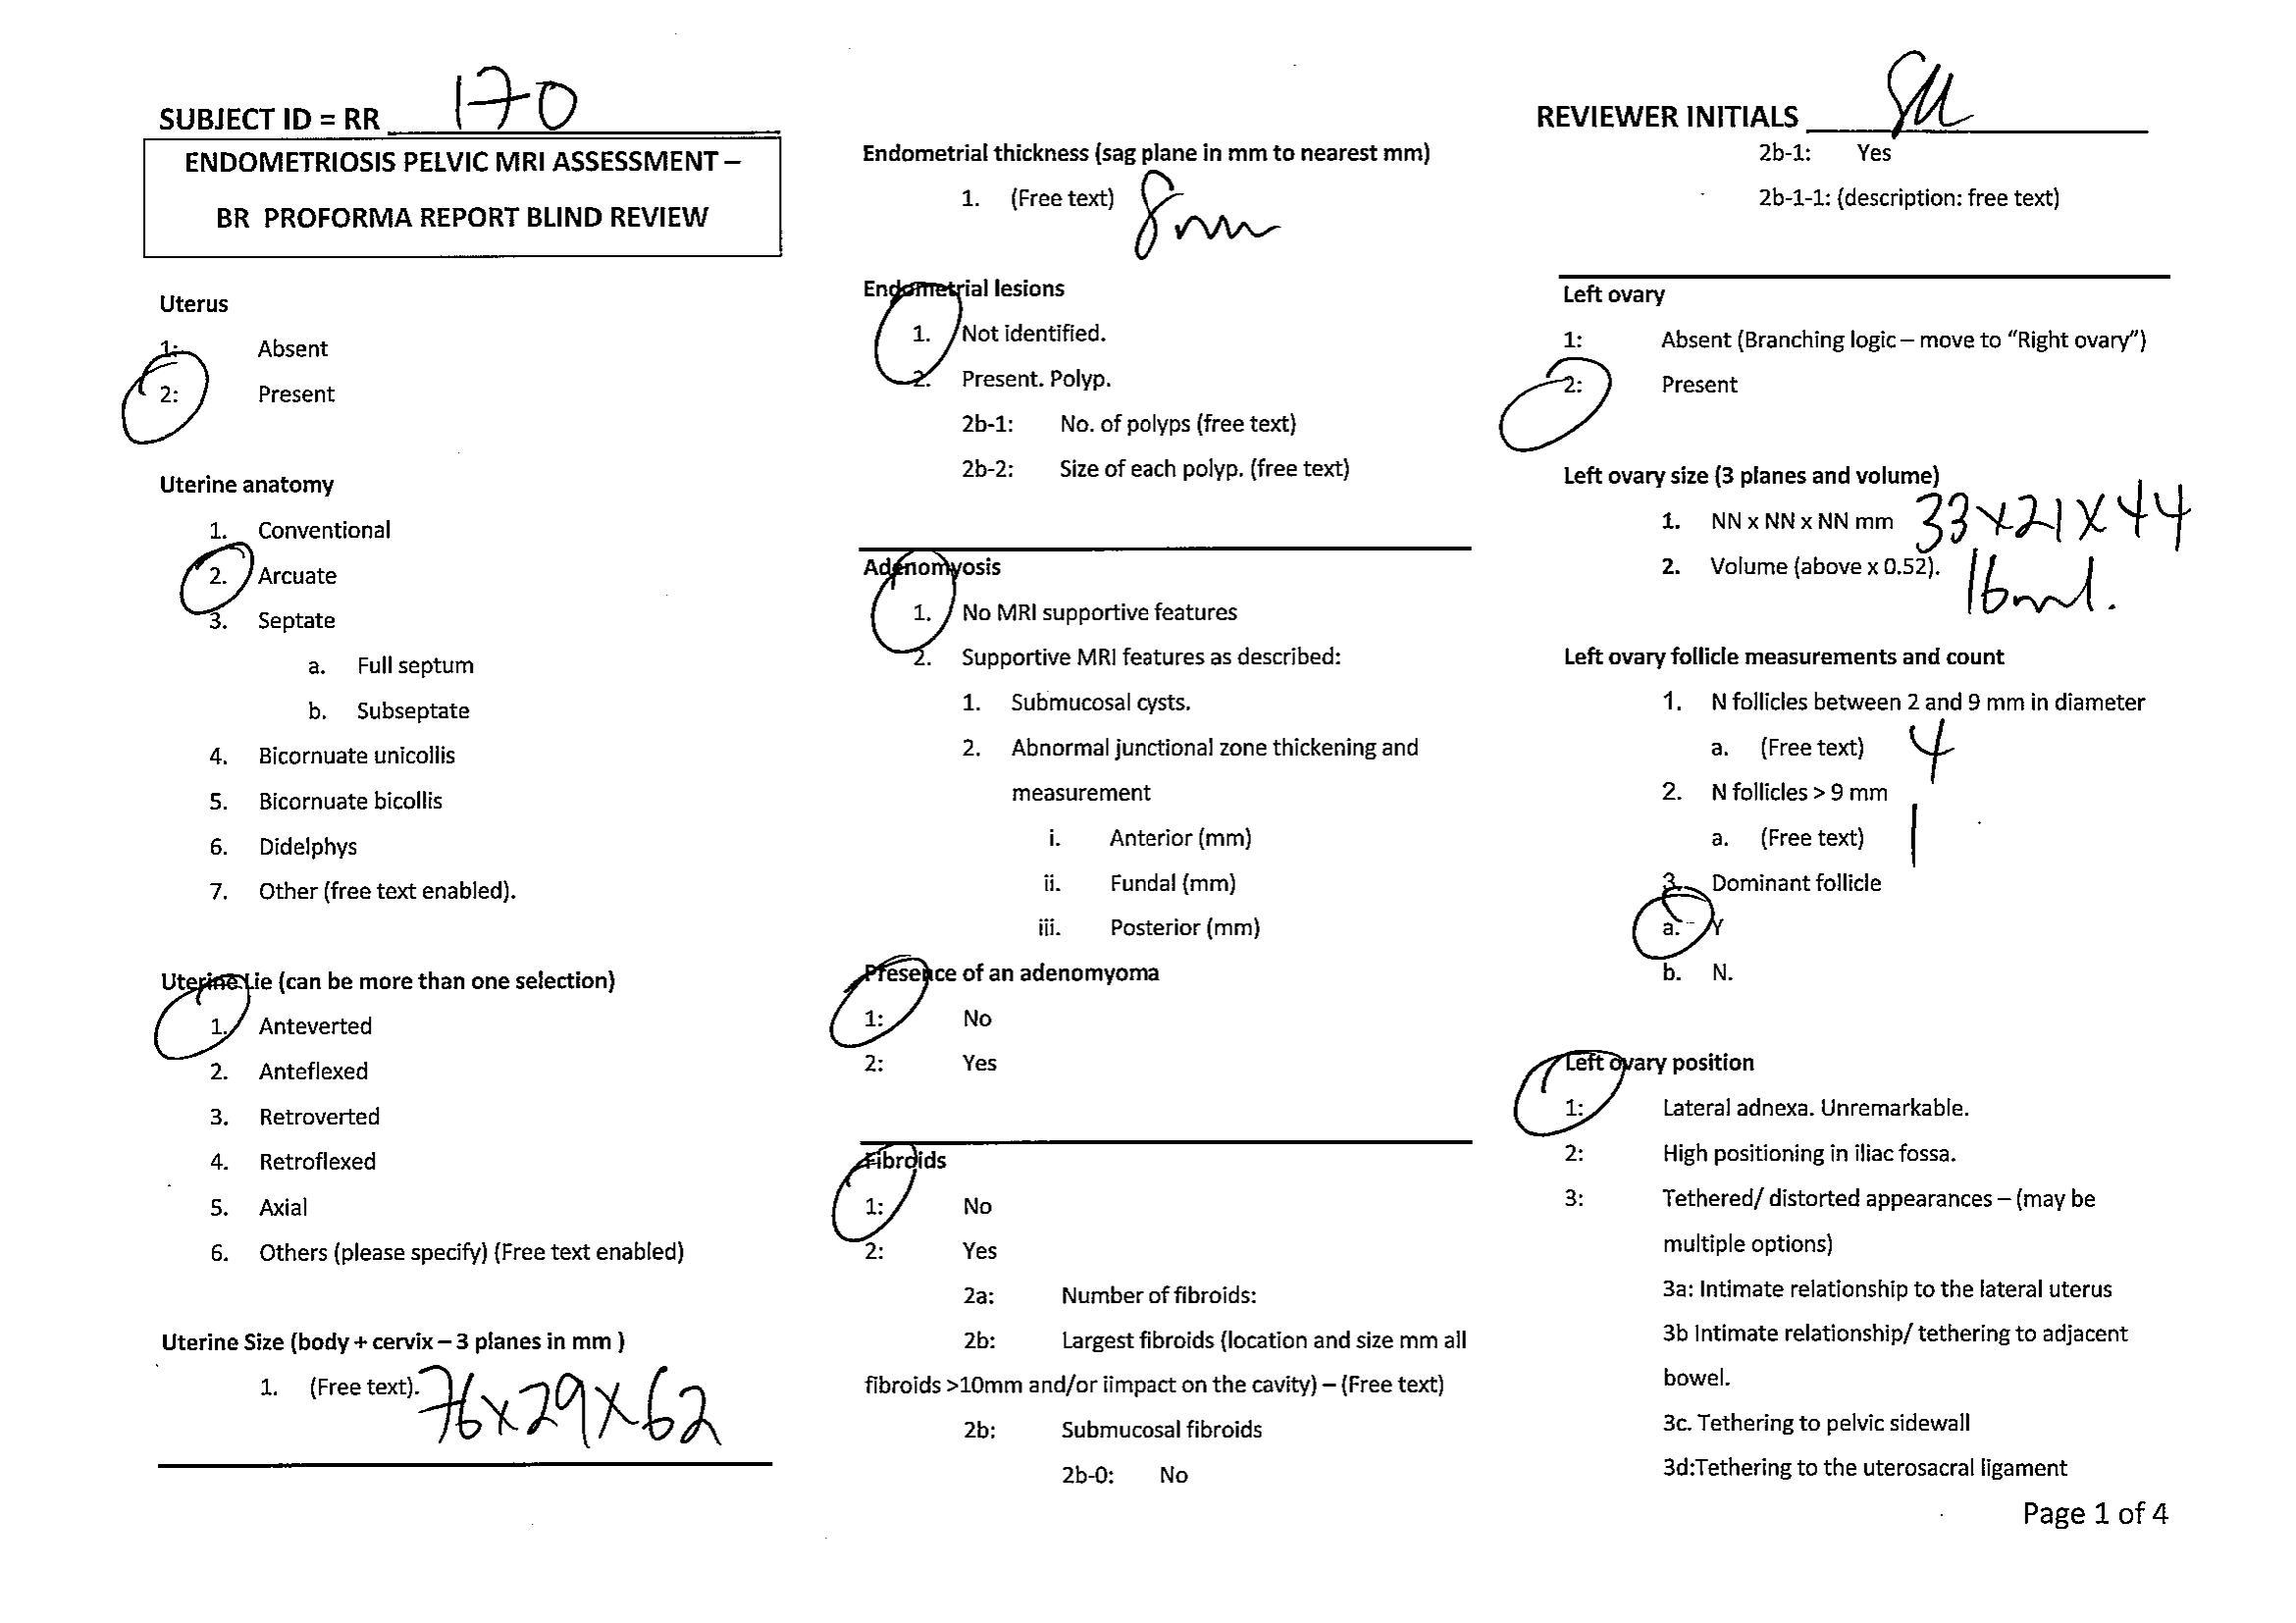 SUBJECT ID = RR 170
ENDOMETRIOSIS PELVIC MRI ASSESSMENT –
BR PROFORMA REPORT BLIND REVIEW
Uterus
1: Absent
2: Present
Uterine anatomy
1. Conventional
2. Arcuate
3. Septate
a. Full septum
b. Subseptate
4. Bicornuate unicollis
5. Bicornuate bicollis
6. Didelphys
7. Other (free text enabled).
Uterine Lie (can be more than one selection)
1. Anteverted
2. Anteflexed
3. Retroverted
4. Retroflexed
5. Axial
6. Others (please specify) (Free text enabled)
Uterine Size (body + cervix – 3 planes in mm )
1. (Free text). 76x29x62
Endometrial thickness (sag plane in mm to nearest mm)
1. (Free text) 8mm
Endometrial lesions
1. Not identified.
2. Present. Polyp.
2b-1: No. of polyps (free text)
2b-2: Size of each polyp. (free text)
Adenomyosis
1. No MRI supportive features
2. Supportive MRI features as described:
1. Submucosal cysts.
2. Abnormal junctional zone thickening and
measurement
i. Anterior (mm)
ii. Fundal (mm)
iii. Posterior (mm)
Presence of an adenomyoma
1: No
2: Yes
Fibroids
1: No
2: Yes
2a: Number of fibroids:
2b: Largest fibroids (location and size mm all
fibroids >10mm and/or iimpact on the cavity) – (Free text)
2b: Submucosal fibroids
2b-0: No
REVIEWER INITIALS
2b-1: Yes
2b-1-1: (description: free text)
Left ovary
1: Absent (Branching logic – move to “Right ovary”)
2: Present
Left ovary size (3 planes and volume)
1. NN x NN x NN mm 33x21x44
2. Volume (above x 0.52). 16ml.
Left ovary follicle measurements and count
1. N follicles between 2 and 9 mm in diameter
a. (Free text) 4
2. N follicles > 9 mm
a. (Free text) 1
3. Dominant follicle
a. Y
b. N.
Left ovary position
1: Lateral adnexa. Unremarkable.
2: High positioning in iliac fossa.
3: Tethered/ distorted appearances – (may be
multiple options)
3a: Intimate relationship to the lateral uterus
3b Intimate relationship/ tethering to adjacent
bowel.
3c. Tethering to pelvic sidewall
3d:Tethering to the uterosacral ligament
Page 1 of 4